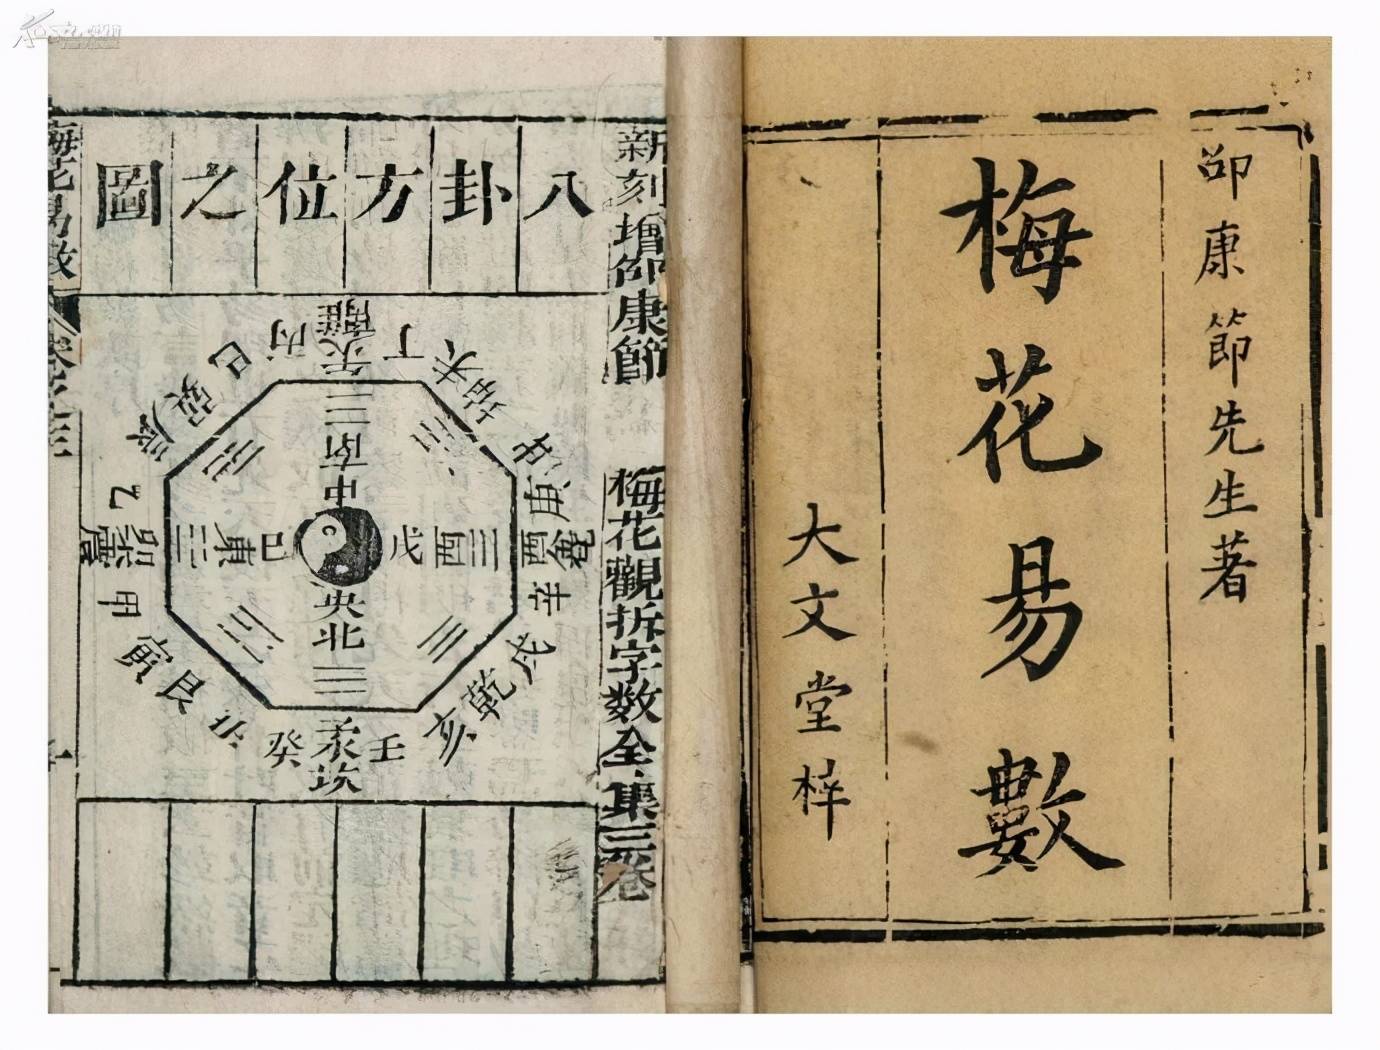 邵康節先生著
梅花易數
大文堂梓
新刻增邵康節
梅花觀拆字数全集三卷
八卦方位之圖
丙
離
午
丁
未
坤
申
庚
酉
兌
辛
戌
乾
亥
壬
子
坎
癸
丑
艮
寅
甲
卯
震
乙
辰
巽
巳
南
中
東
巳
戊
酉
央
北
梅花易数